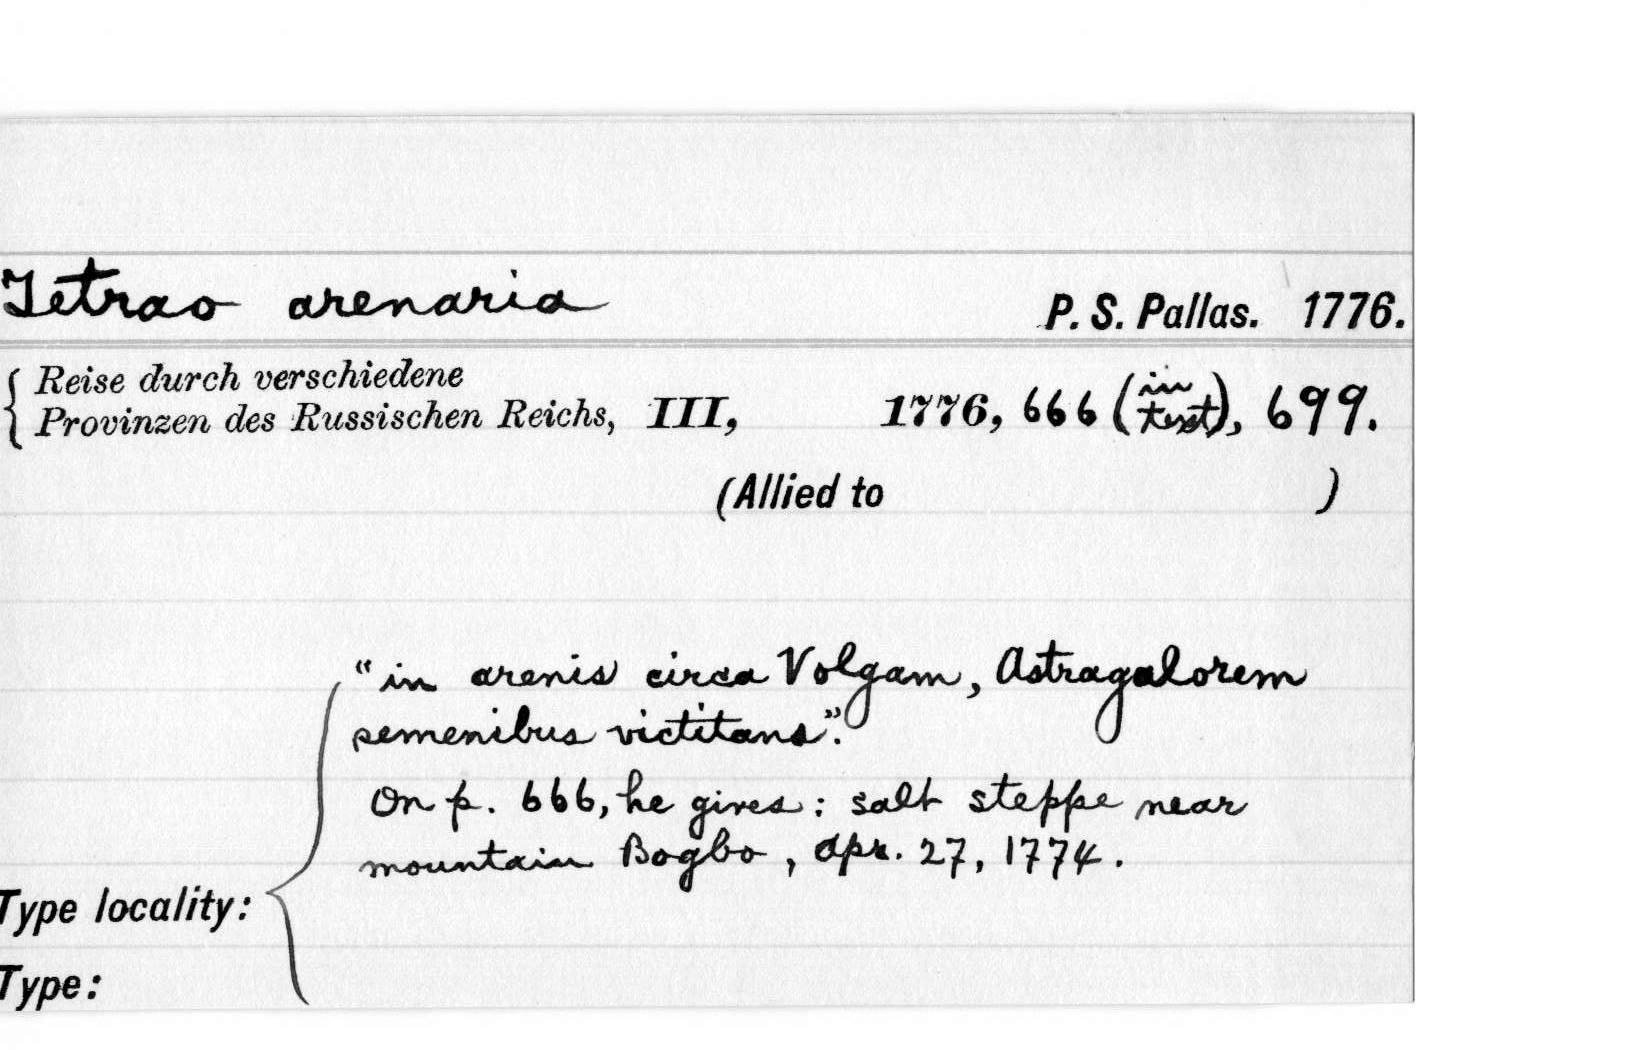 Tetrao arenaria P. S. Pallas. 1776.
Reise durch verschiedene
Provinzen des Russischen Reichs, III, 1776, 666 (in text), 699.
(Allied to )
"in arenis circa Volgam, Astragalorem
semenibus victitans".
On p. 666, he gives: salt steppe near
mountain Bogbo, Apr. 27, 1774.
Type locality:
Type: